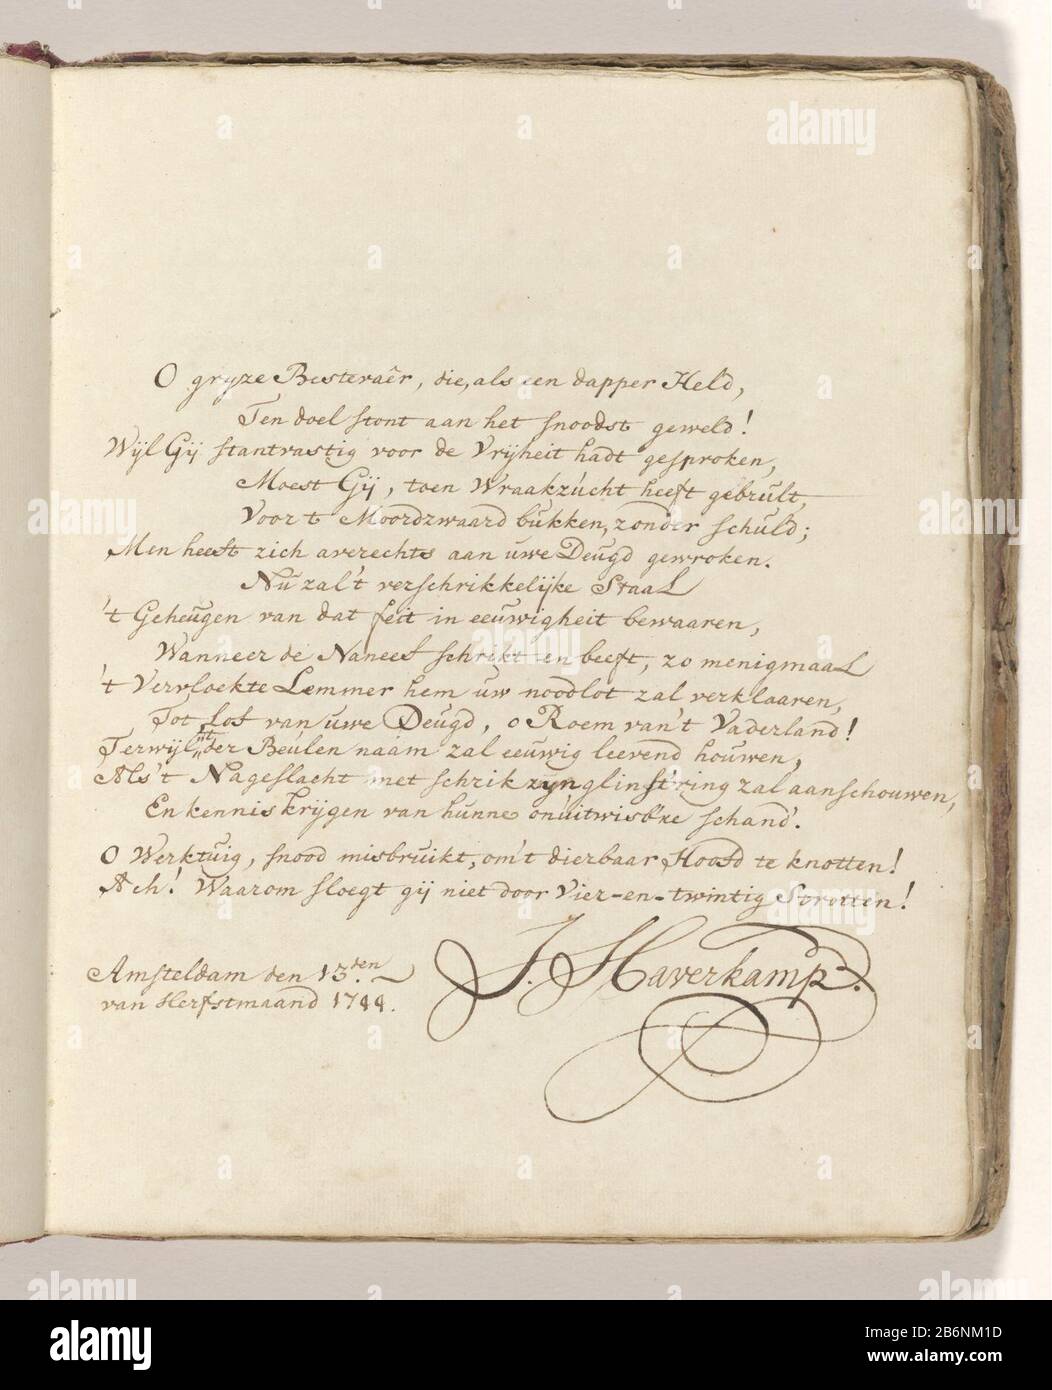 O gryze Bestevaêr, die, als een dapper Held,
Ten doel stont aan het snoodst geweld!
Wijl Gij stantvastig voor de Vrijheit hadt gesproken,
Moest Gij, toen Wraakzŭcht heeft gebrŭlt,
Voor 't Moordzwaard bŭkken, zonder schŭld;
Men heeft zich averechts aan ŭwe Deŭgd gewroken.
Nŭ zal 't verschrikkelijke StaaL
't Geheŭgen van dat feit in eeŭwigheit bewaaren,
Wanneer de Naneef schrikt en beeft, zo menigmaaL
't Vervloekte Lemmer hem ŭw noodlot zal verklaaren,
Tot Lof van ŭwe Deŭgd, o Roem van 't Vaderland!
Terwijl 't der Beŭlen naam zal eeŭwig leevend hoŭwen,
Als 't Nageslacht met schrik zijn glinst'ring zal aanschoŭwen,
En kennis krijgen van hŭnne onŭitwisb're schand'.
O Werktŭig, snood misbrŭikt, om 't dierbaar Hoofd te knotten!
Ach! Waarom sloegt gij niet door Vier-en-twintig Strotten!
Amsteldam den 13.den
van Herfstmaand 1744.
J. Haverkamp.
alamy
Image ID: B6NM1D
www.alamy.com